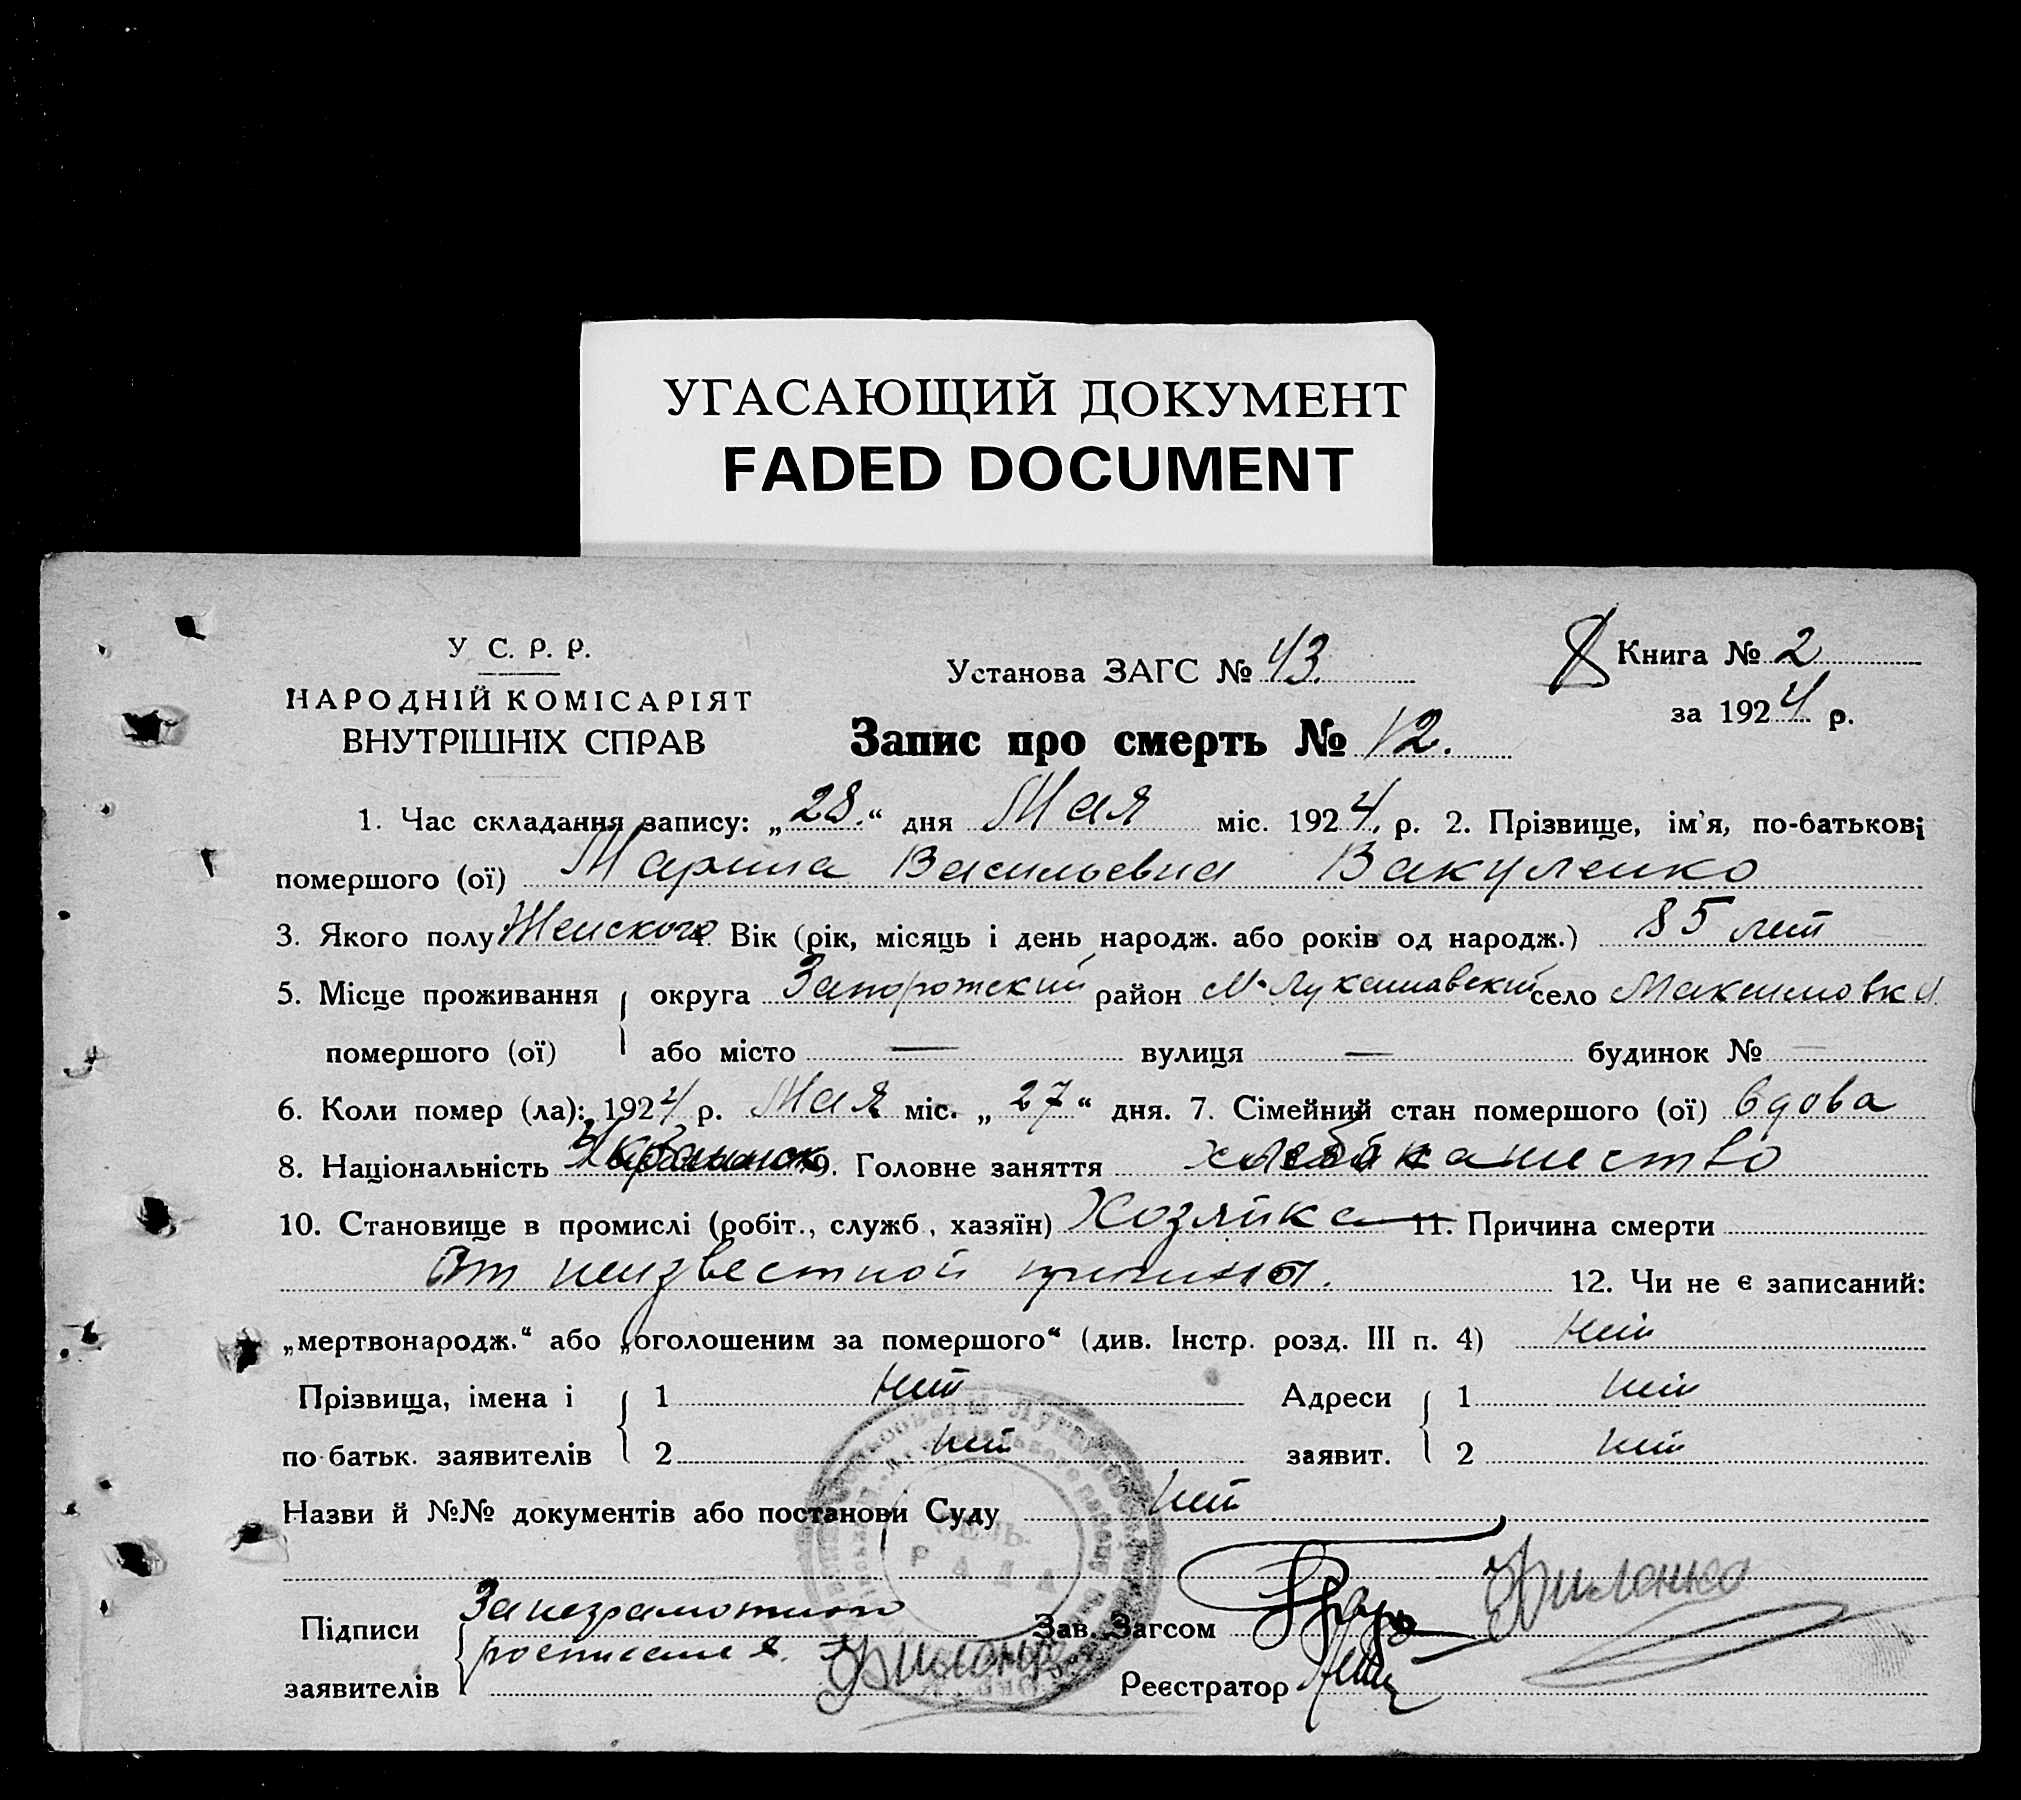 УГАСАЮЩИЙ ДОКУМЕНТ
FADED DOCUMENT
У С. Р. Р.
НАРОДНІЙ КОМІСАРІЯТ
ВНУТРІШНІХ СПРАВ
Установа ЗАГС № 43.
Книга № 2
за 1924 р.
Запис про смерть № 12.
1. Час складання запису: „28.“ дня Мая міс. 1924, р. 2. Прізвище, ім'я, по-батькові
помершого (ої) Марина Васильевна Вакуленко
3. Якого полу Женского Вік (рік, місяць і день народж. або років од народж.) 85 лет
5. Місце проживання округа Запорожский район М-Лукашавский село Максимовка
помершого (ої) або місто — вулиця — будинок № —
6. Коли помер (ла): 1924 р. Мая міс. „27“ дня. 7. Сімейний стан помершого (ої) вдова
8. Національність 9. Головне заняття
10. Становище в промислі (робіт., служб., хазяїн) Хозяйка 11. Причина смерти
От неизвестной причины. 12. Чи не є записаний:
„мертвонародж.“ або „оголошеним за помершого“ (див. Інстр. розд. III п. 4) нет
Прізвища, імена і 1 нет Адреси 1 нет
по-батьк. заявителів 2 нет заявит. 2 нет
Назви й №№ документів або постанови Суду нет
РАДА
Підписи За неграмотного Зав. Загсом
заявителів росписался. Филонько Реєстратор
Филонько